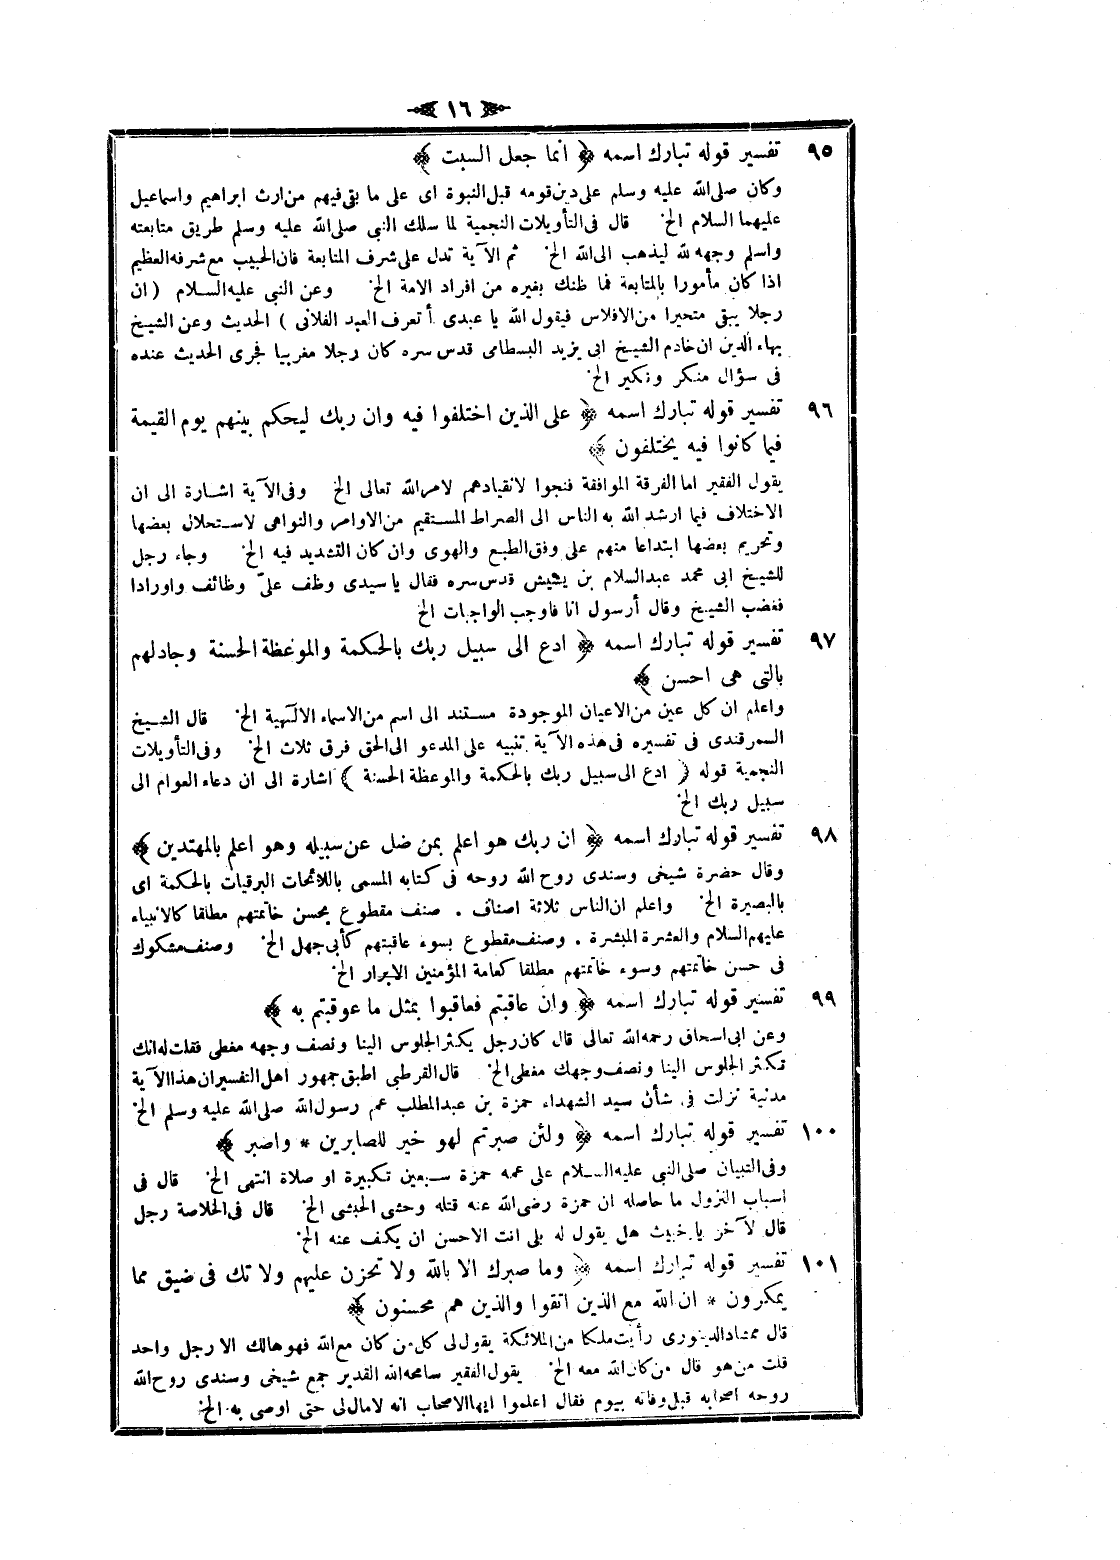 ١٦
٩٥ تفسير قوله تبارك اسمه ﴿ انما جعل السبت ﴾
وكان صلى الله عليه وسلم على دين قومه قبل النبوة اى على ما بقى فيهم من ارث ابراهيم واسماعيل
عليهما السلام الخ قال فى التأويلات النجمية لما سلك النبى صلى الله عليه وسلم طريق متابعته
واسلم وجهه لله ليذهب الى الله الخ ثم الآية تدل على شرف المتابعة فان الحبيب مع شرفه العظيم
اذا كان مأمورا بالمتابعة فما ظنك بغيره من افراد الامة الخ وعن النبى عليه السلام ( ان
رجلا يبقى متحيرا من الافلاس فيقول الله يا عبدى أتعرف العبد الفلانى ) الحديث وعن الشيخ
بهاء الدين ان خادم الشيخ ابى يزيد البسطامى قدس سره كان رجلا مغربيا فجرى الحديث عنده
فى سؤال منكر ونكير الخ
٩٦ تفسير قوله تبارك اسمه ﴿ على الذين اختلفوا فيه وان ربك ليحكم بينهم يوم القيمة
فيما كانوا فيه يختلفون ﴾
يقول الفقير اما الفرقة الموافقة فنجوا لانقيادهم لامر الله تعالى الخ وفى الآية اشارة الى ان
الاختلاف فيما ارشد الله به الناس الى الصراط المستقيم من الاوامر والنواهى لاستحلال بعضها
وتحريم بعضها ابتداعا منهم على وفق الطبع والهوى وان كان التشديد فيه الخ وجاء رجل
للشيخ ابى محمد عبدالسلام بن يشيش قدس سره فقال يا سيدى وظف علىّ وظائف واورادا
فغضب الشيخ وقال أرسول انا فاوجب الواجبات الخ
٩٧ تفسير قوله تبارك اسمه ﴿ ادع الى سبيل ربك بالحكمة والموعظة الحسنة وجادلهم
بالتى هى احسن ﴾
واعلم ان كل عين من الاعيان الموجودة مستند الى اسم من الاسماء الالٓهية الخ قال الشيخ
السمرقندى فى تفسيره فى هذه الآية تنبيه على المدعو الى الحق فرق ثلاث الخ وفى التأويلات
النجمية قوله ﴿ ادع الى سبيل ربك بالحكمة والموعظة الحسنة ﴾ اشارة الى ان دعاء العوام الى
سبيل ربك الخ
٩٨ تفسير قوله تبارك اسمه ﴿ ان ربك هو اعلم بمن ضل عن سبيله وهو اعلم بالمهتدين ﴾
وقال حضرة شيخى وسندى روح الله روحه فى كتابه المسمى باللائحات البرقيات بالحكمة اى
بالبصيرة الخ واعلم ان الناس ثلاثة اصناف . صنف مقطوع بحسن خاتمتهم مطلقا كالانبياء
عليهم السلام والعشرة المبشرة . وصنف مقطوع بسوء عاقبتهم كأبى جهل الخ وصنف مشكوك
فى حسن خاتمتهم وسوء خاتمتهم مطلقا كعامة المؤمنين الابرار الخ
٩٩ تفسير قوله تبارك اسمه ﴿ وان عاقبتم فعاقبوا بمثل ما عوقبتم به ﴾
وعن ابى اسحاق رحمه الله تعالى قال كان رجل يكثر الجلوس الينا ونصف وجهه مغطى فقلت له انك
تكثر الجلوس الينا ونصف وجهك مغطى الخ قال القرطبى اطبق جمهور اهل التفسير ان هذا الآية
مدنية نزلت فى شأن سيد الشهداء حمزة بن عبدالمطلب عم رسول الله صلى الله عليه وسلم الخ
١٠٠ تفسير قوله تبارك اسمه ﴿ ولئن صبرتم لهو خير للصابرين * واصبر ﴾
وفى التبيان صلى النبى عليه السلام على عمه حمزة سبعين تكبيرة او صلاة انتهى الخ قال فى
اسباب النزول ما حاصله ان حمزة رضى الله عنه قتله وحشى الحبشى الخ قال فى الخلاصة رجل
قال لآخر يا خبيث هل يقول له بلى انت الاحسن ان يكف عنه الخ
١٠١ تفسير قوله تبارك اسمه ﴿ وما صبرك الا بالله ولا تحزن عليهم ولا تك فى ضيق مما
يمكرون * ان الله مع الذين اتقوا والذين هم محسنون ﴾
قال ممشاد الدينورى رأيت ملكا من الملائكة يقول لى كل من كان مع الله فهو هالك الا رجل واحد
قلت من هو قال من كان الله معه الخ يقول الفقير سامحه الله القدير جمع شيخى وسندى روح الله
روحه اصحابه قبل وفاته بيوم فقال اعلموا ايها الاصحاب انه لا مال لى حتى اوصى به الخ